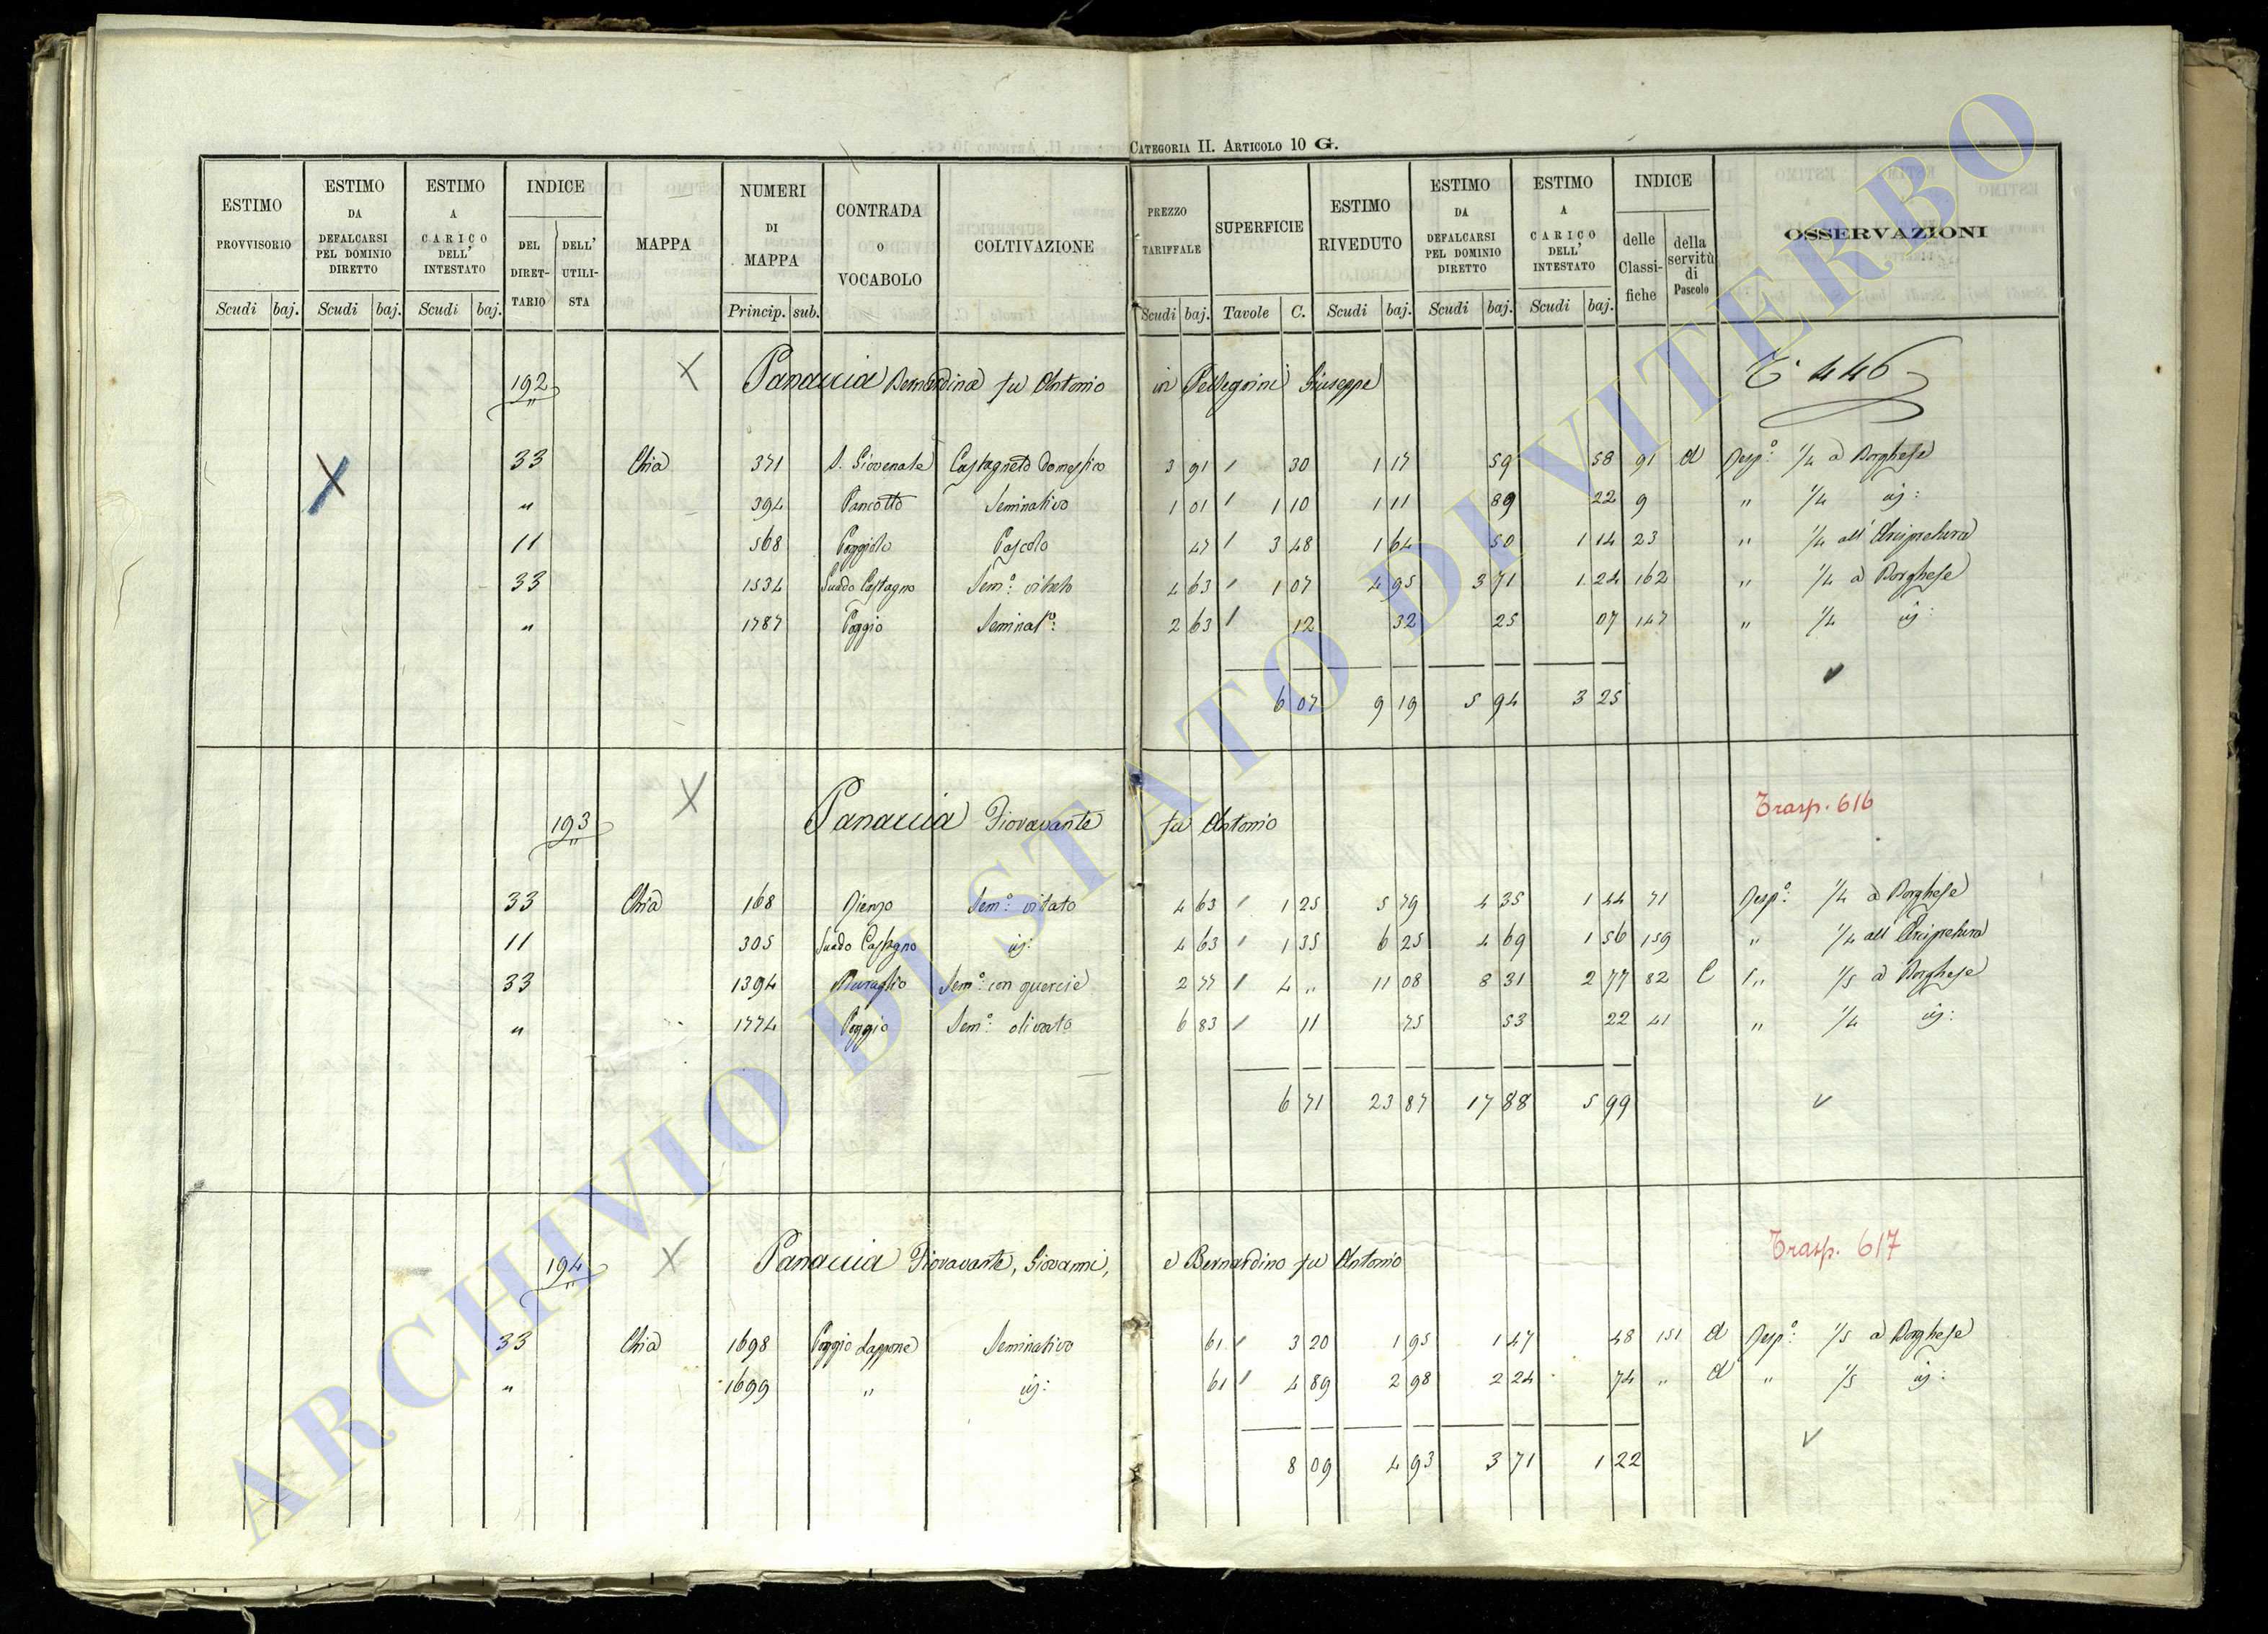 CATEGORIA II. ARTICOLO 10 G.
ESTIMO PROVVISORIO Scudi baj.
ESTIMO DA DEFALCARSI PEL DOMINIO DIRETTO Scudi baj.
ESTIMO A CARICO DELL' INTESTATO Scudi baj.
INDICE DEL DIRETTARIO DELL' UTILISTA
MAPPA
NUMERI DI MAPPA Princip. sub.
CONTRADA O VOCABOLO
COLTIVAZIONE
PREZZO TARIFFALE Scudi baj.
SUPERFICIE Tavole C.
ESTIMO RIVEDUTO Scudi baj.
ESTIMO DA DEFALCARSI PEL DOMINIO DIRETTO Scudi baj.
ESTIMO A CARICO DELL' INTESTATO Scudi baj.
INDICE delle Classifiche della servitù di Pascolo
OSSERVAZIONI
192 X Panaccia Bernardina fu Antonio in Pellegrini Giuseppe 446
X
33 Chia 371 S. Giovenale Castagneto Domestico 3 91 30 1 17 59 58 91 d Risp.o: 1/4 a Borghese
" 394 Pancotto Seminativo 1 01 1 10 1 11 89 22 9 " 1/4
11 568 Poggiolo Pascolo 47 3 48 1 64 50 1 14 23 " 1/4 all'Arcipretura
33 1534 Castagno Sem.o: vitato 4 63 1 07 4 95 3 71 1 24 162 " 1/4 a Borghese
" 1787 Poggio Seminat.o: 2 63 12 32 25 07 147 " 1/4
6 07 9 19 5 94 3 25
193 X Panaccia Fioravante fu Antonio Trasp. 616
33 Chia 168 Sem.o: vitato 4 63 1 25 5 79 4 35 1 44 71 Risp.o: 1/4 a Borghese
11 305 Castagno 4 63 1 35 6 25 4 69 1 56 159 " 1/4 all'Arcipretura
33 1394 Sem.o: con quercie 2 77 4 " 11 08 8 31 2 77 82 C " 1/5 a Borghese
" 1774 Poggio Sem.o: olivato 6 83 11 75 53 22 41 " 1/4
6 71 23 87 17 88 5 99
194 X Panaccia Fioravante, Giovanni, e Bernardino fu Antonio Trasp. 617
33 Chia 1698 Poggio Lappone Seminativo 61 3 20 1 95 1 47 48 151 d Risp.o: 1/5 a Borghese
" 1699 " 61 4 89 2 98 2 24 74 " d " 1/5
8 09 4 93 3 71 1 22
ARCHIVIO DI STATO DI VITERBO